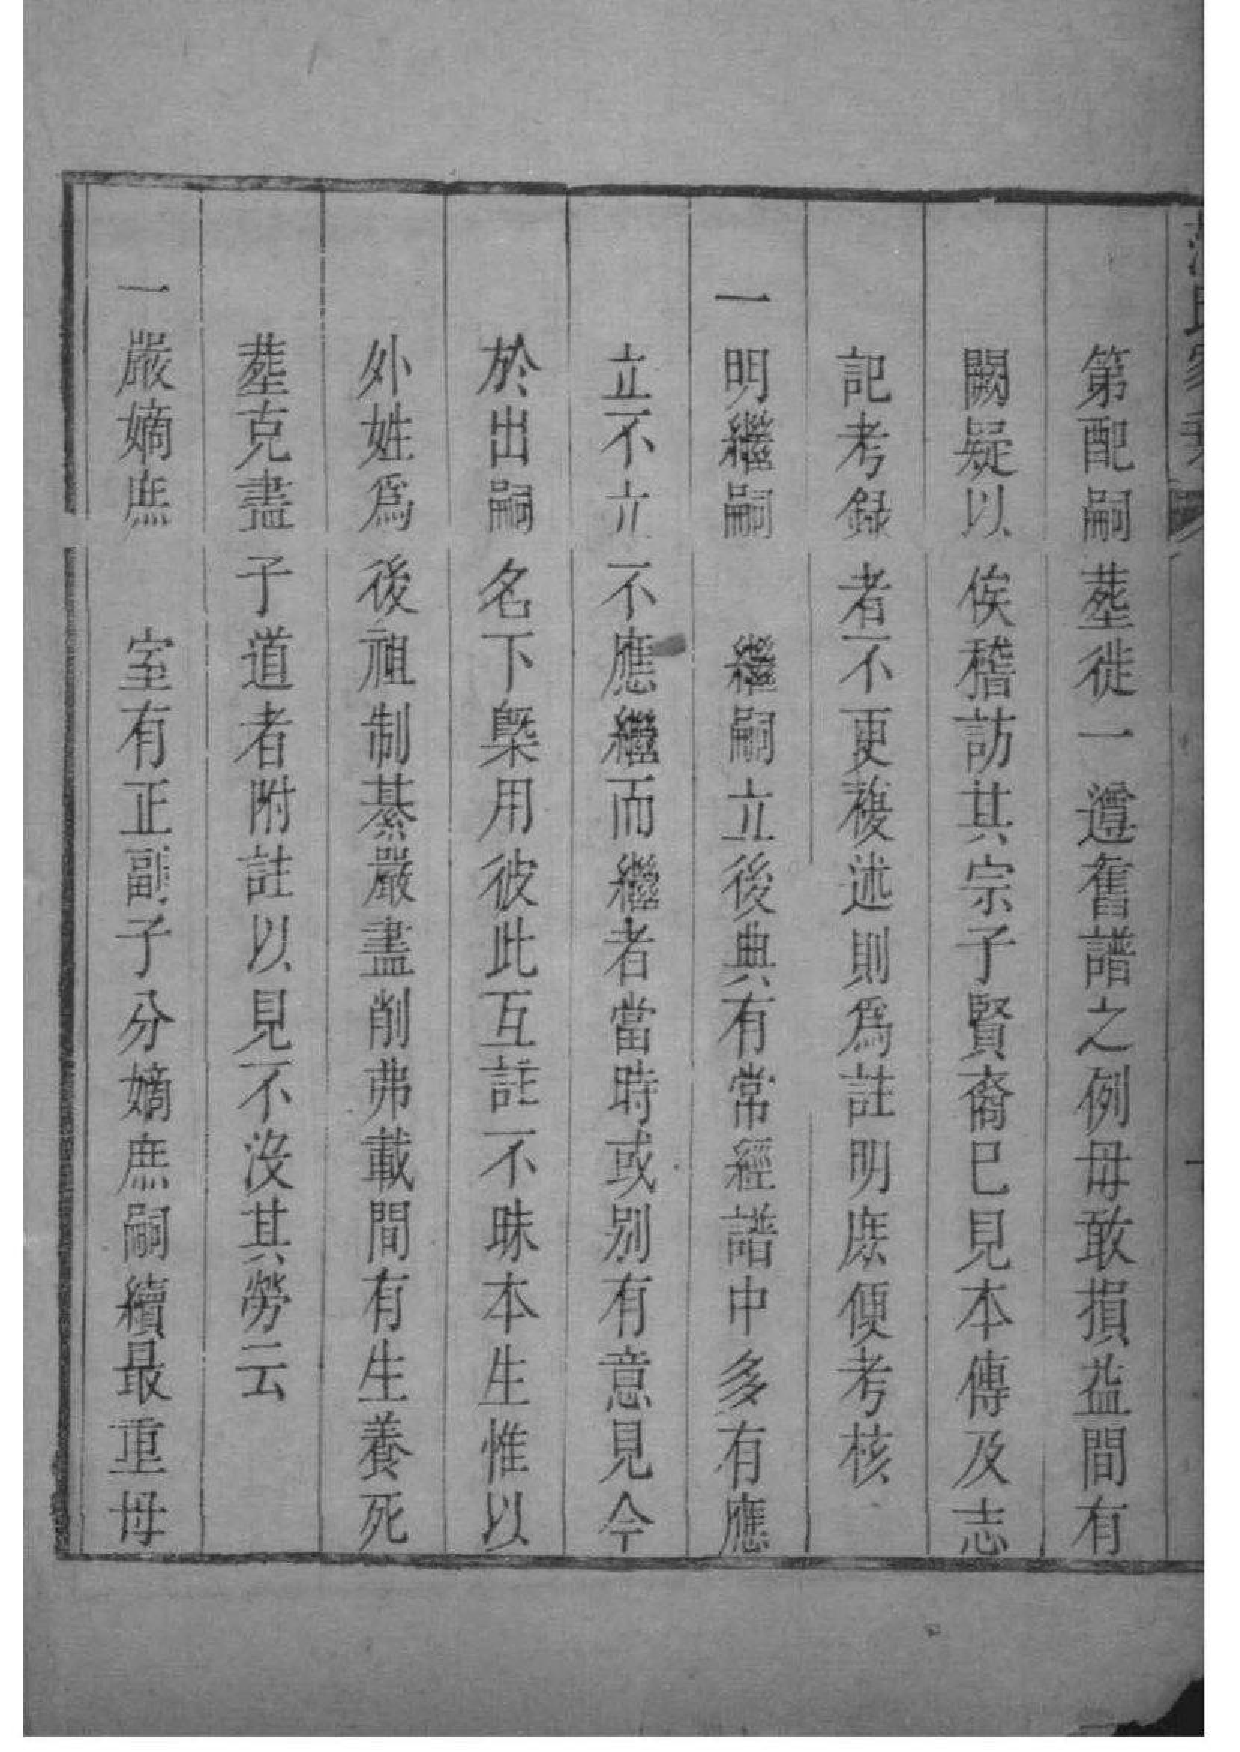 氏家乘
第配嗣葬徙一遵舊譜之例毋敢損益間有
闕疑以俟稽訪其宗子賢裔已見本傳及志
記考錄者不更複述則爲註明庶便考核
一明繼嗣 繼嗣立後典有常經譜中多有應
立不立不應繼而繼者當時或別有意見今
於出嗣名下槩用彼此互註不昧本生惟以
外姓爲後祖制綦嚴盡削弗載間有生養死
葬克盡子道者附註以見不沒其勞云
一嚴嫡庶 室有正副子分嫡庶嗣續最重母